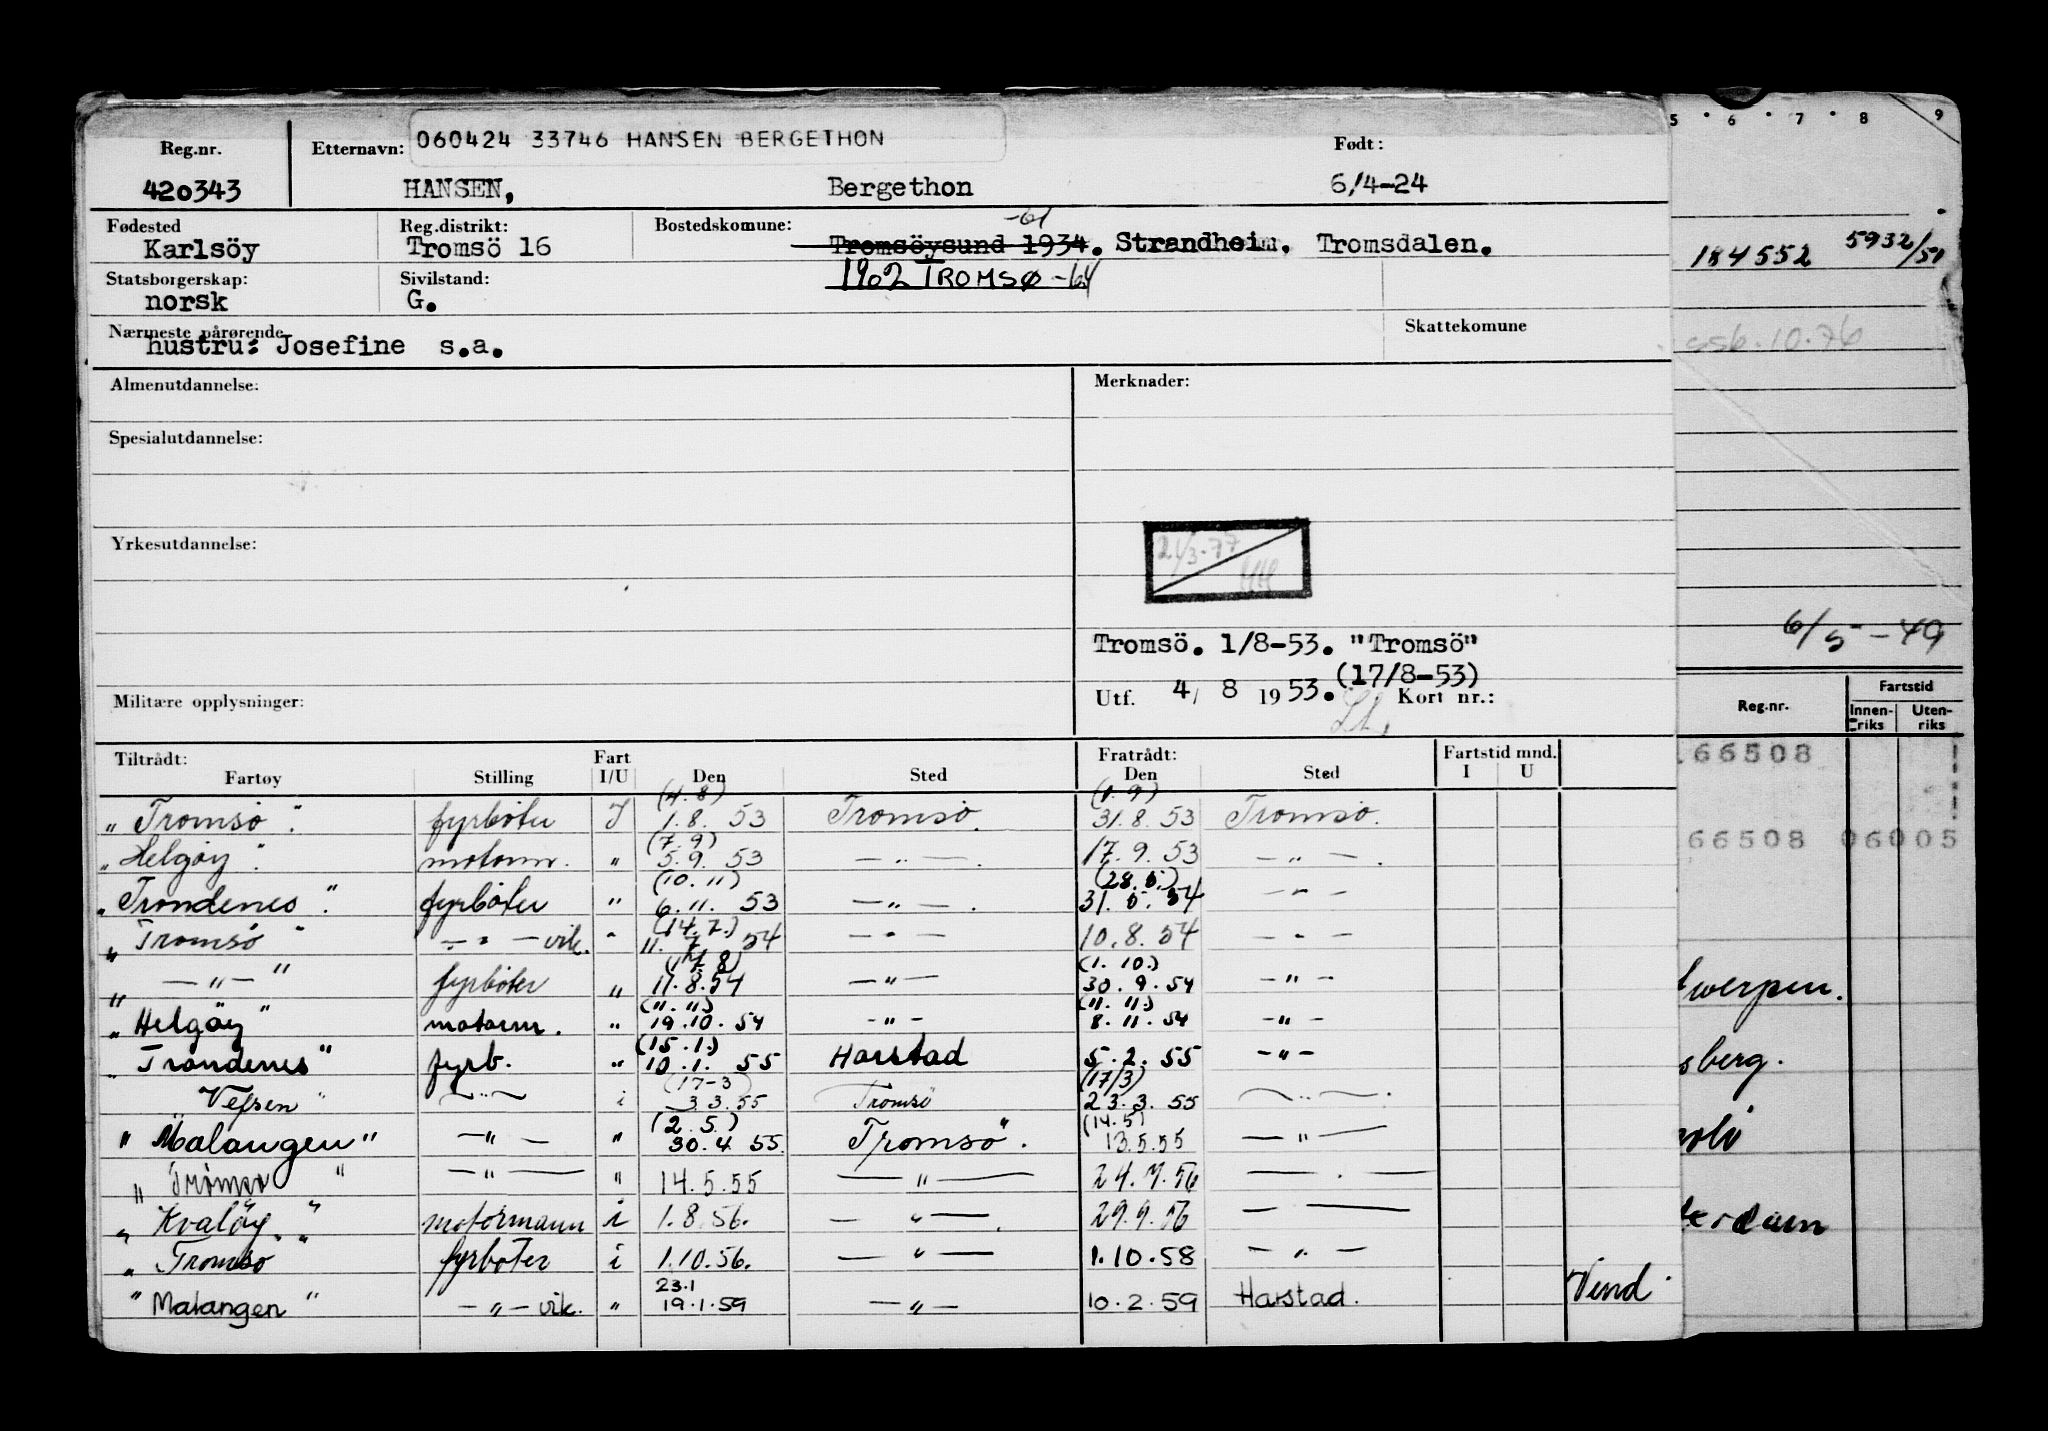 Reg.nr. Etternavn: 060424 33746 HANSEN BERGETHON Født:
420343 HANSEN, Bergethon 6/4-24
Fødested Reg.distrikt: Bostedskomune: -61
Karlsöy Tromsö 16 Tromsöysund 1934. Strandheim, Tromsdalen.
Statsborgerskap: Sivilstand: 1962 TROMSØ -64
norsk G.
Nærmeste pårørende Skattekomune
hustru: Josefine s.a.
Almenutdannelse: Merknader:
Spesialutdannelse:
Yrkesutdannelse: 21/3-77
HH
Tromsö. 1/8-53. "Tromsö"
(17/8-53)
Militære opplysninger: Utf. 4/ 8 1953. Kort nr.:
Tiltrådt: Fart Fratrådt: Fartstid mnd.
Fartøy Stilling I/U Den Sted Den Sted I U
(4.8) (1.9)
"Tromsö". fyrböter I 1.8. 53 Tromsö. 31.8.53 Tromsö.
(7.9)
"Helgöy". motorm. " 5.9.53 — " — . 17.9.53 — " — .
(10.11) (28.5.)
"Trondenes". fyrböter " 6.11.53 — " — . 31.5.54 — " —
(14.7.)
"Tromsö" — " — vik. " 11.7.54 — " — 10.8.54 — " —
(17.8) (1.10.)
" — " — " fyrböter " 11.8.54 — " — 30.9.54 — " —
(11.11) (11.11.)
"Helgöy" motorm. " 19.10.54 — " — 8.11.54 — " —
(15.1.)
"Trondenes" fyrb. " 10.1.55 Harstad 5.2.55 — " —
(17-3) (17/3)
Vefsen" — " — i 3.3.55 Tromsö 23.3.55 — " — .
(2.5.) (14.5)
"Malangen" — " — " 30.4.55 Tromsö". 13.5.55 — " —
"Tromsö" — " — " 14.5.55 — " — 24.7.56 — . —
"Kvalöy" motormann i 1.8.56. — " — . 29.9.56 — " —
"Tromsö" fyrböter i 1.10.56. — " — 1.10.58 — " —
23.1
"Malangen" — " — vik. " 19.1.59 — " — 10.2.59 Harstad. Vend
5 · 6 · 7 · 8 9
184552 5932/51
6/5-49
Reg.nr. Fartstid
Innen-riks Uten-riks
166508
66508 06005